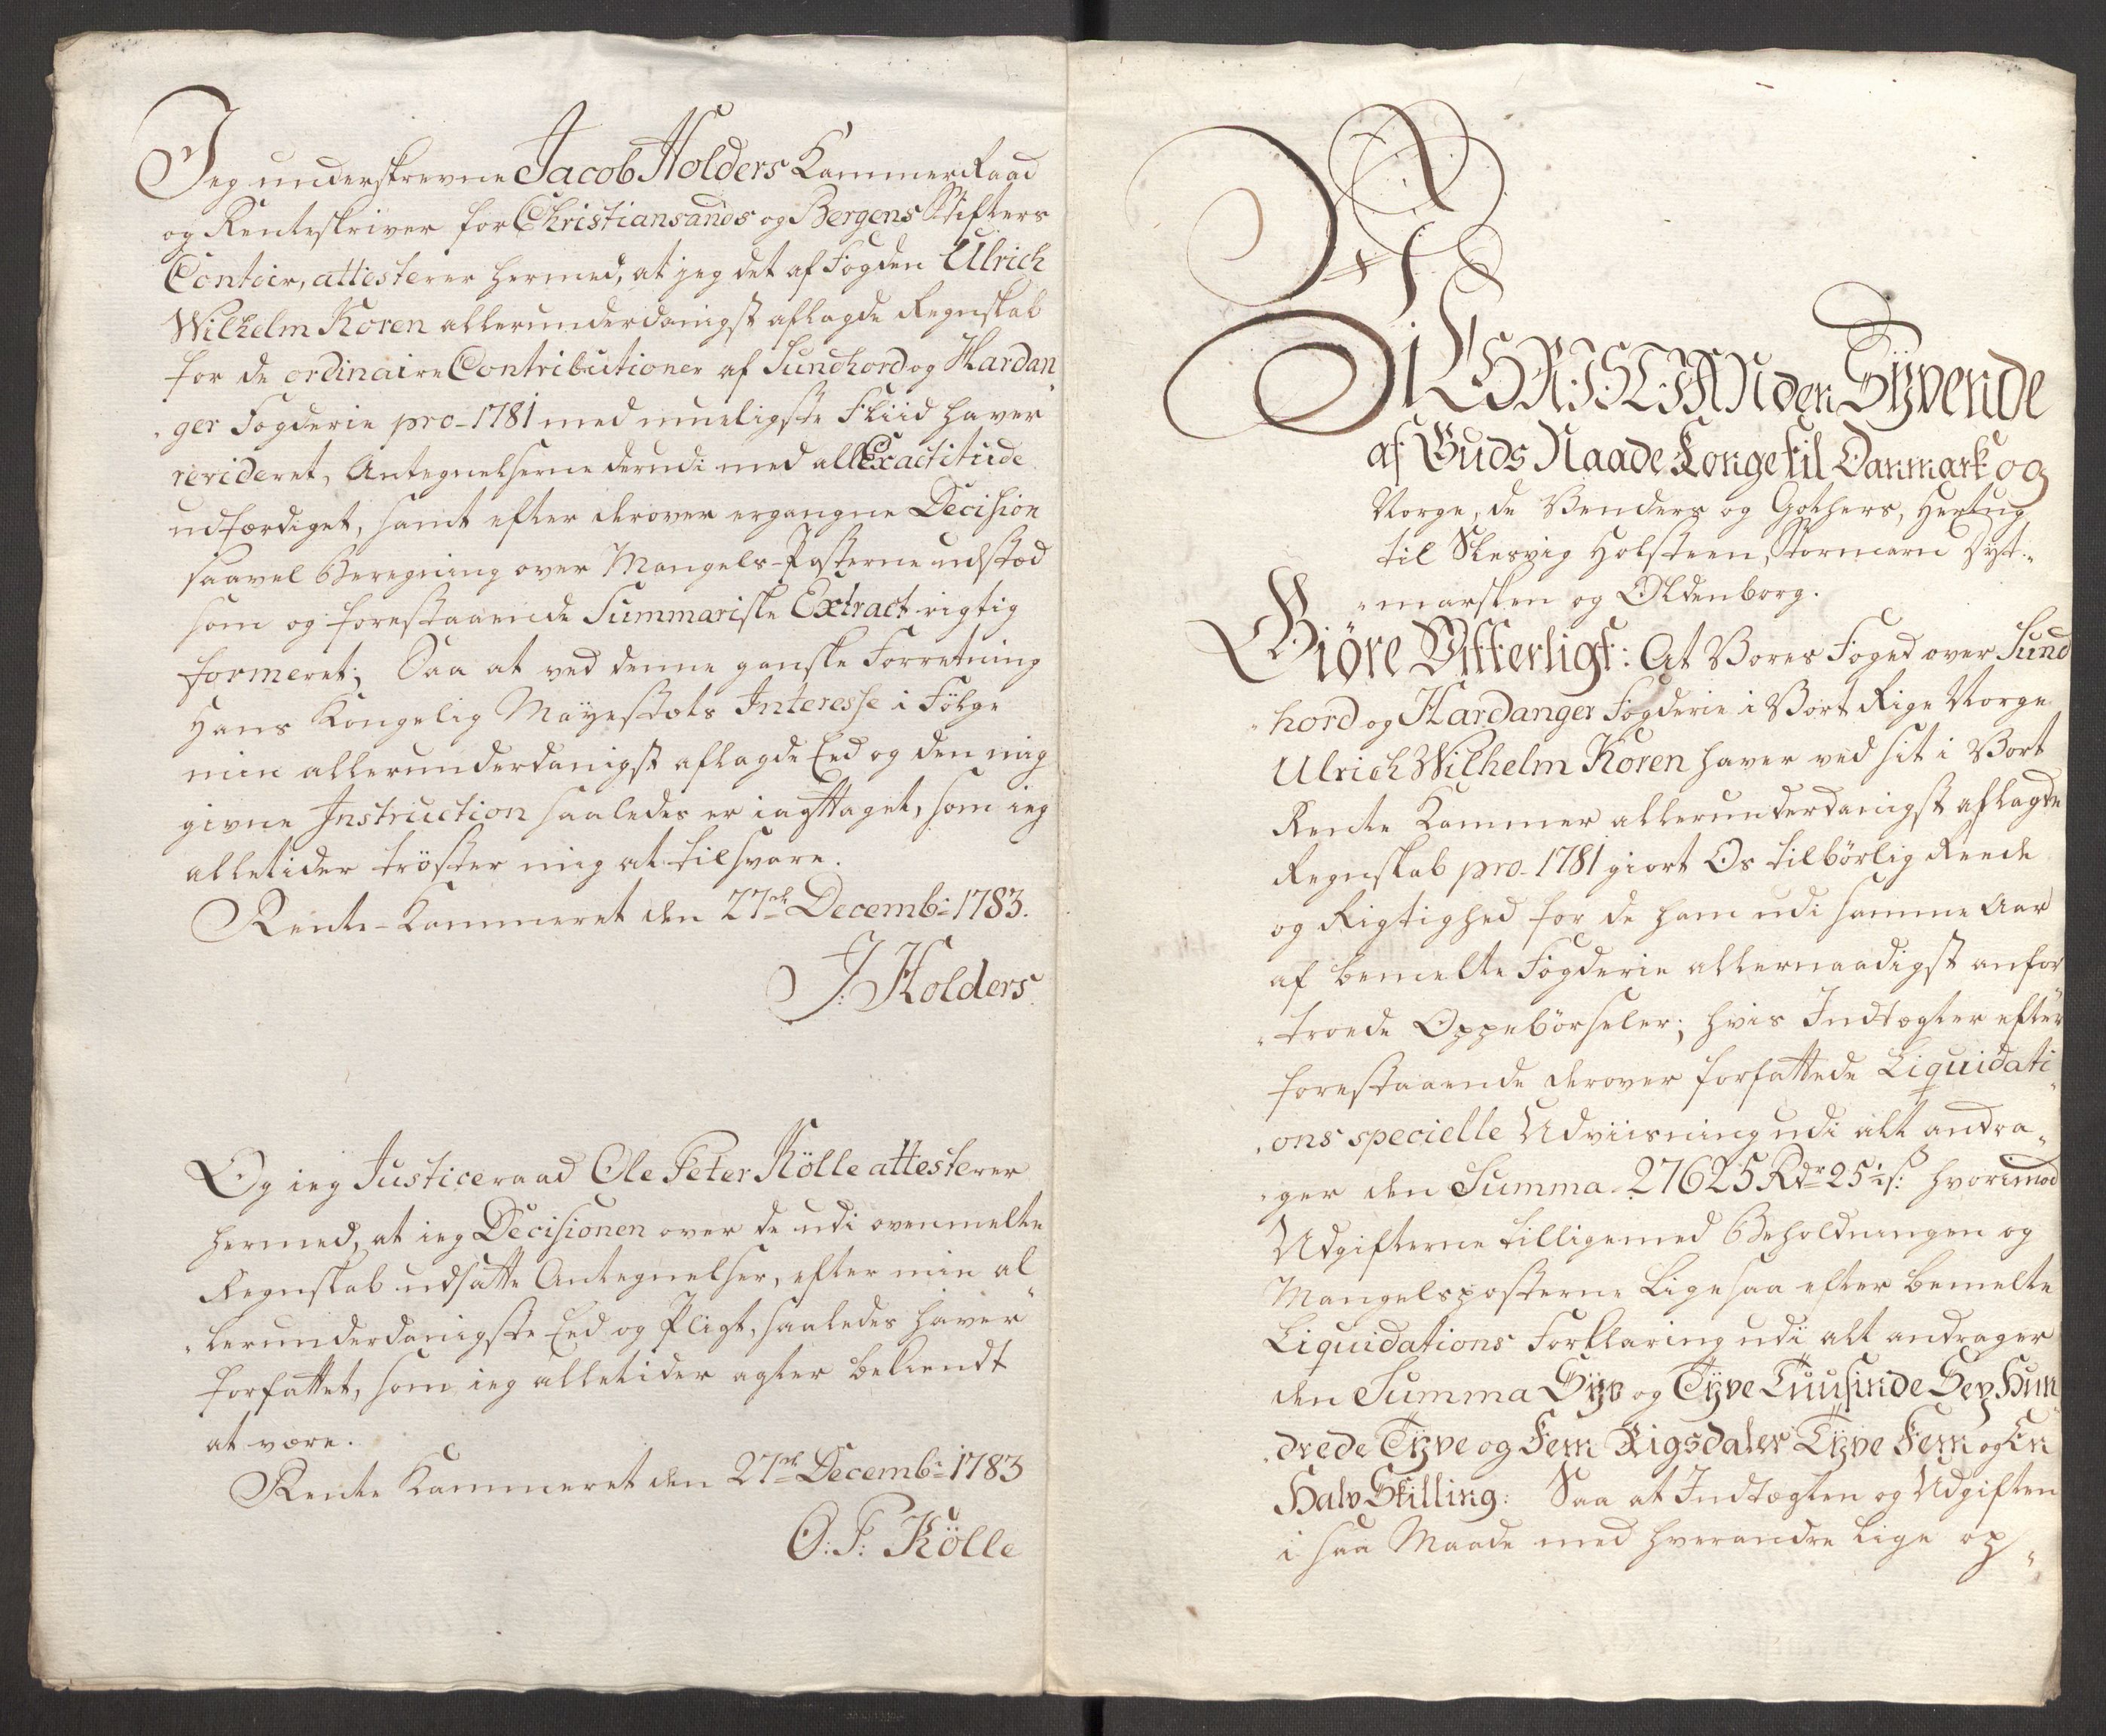 Jeg underskrevne Jacob Holders KammerRaad
og Renteskriver for Christiansands og Bergens Stifters
Contoir, attesterer hermed, at jeg det af Fogden Ulrich
Wilhelm Koren allerunderdanigst aflagde Regnskab
for de ordinaire Contributioner af Sundhord og Hardan„
„ger Fogderie pro 1781 med mueligste Fliid haver
revideret, Antegnelserne derudi med all Exactitude
udfærdiget, samt efter derover ergangne Decision
saavel Beregning over Mangels-Posterne udstæd
som og forestaaende Summariske Extract rigtig
formeret; Saa at ved denne ganske Forretning
Hans Kongelig Mayestæts Interesse i Fölge
min allerunderdanigst aflagde Eed og den mig
givne Instruction saaledes er iagttaget, som ieg
alletider tröster mig at tilsvare.
Rente-Kammeret den 27de Decemb: 1783.
J: Holders
Og ieg Justiceraad Ole Peter Kölle attesterer
hermed, at ieg Decisionen over de udi ovenmelte
Regnskab udsatte Antegnelser, efter min al„
„lerunderdanigste Eed og Pligt, saaledes haver
forfattet, som ieg alletider agter bekiendt
at være.
Rente Kammeret den 27de Decemb: 1783
O: P: Kölle
Vi CHRISTIAN den Syvende
af Guds Naade Konge til Danmark og
Norge, de Venders og Gothers, Hertug
til Slesvig Holsteen, Stormarn Dyt„
„marsken og Oldenborg.
Giöre Vitterligt: At Vores Foged over Sund
„hord og Hardanger Fogderie i Vort Rige Norge
Ulrich Wilhelm Koren haver ved sit i Vort
Rente Kammer allerunderdanigst aflagde
Regnskab pro 1781 giort Os tilbörlig Reede
og Rigtighed for de ham udi samme Aar
af bemelte Fogderie allernaadigst anfor„
„troede Oppebörseler; hvis Indtægter efter
forestaaende derover forfattede Liquidati„
„ons specielle Udviisning udi alt andra„
„ger den Summa 27625 Rdr 25½ s: hvorimod
Udgifterne tilligemed Beholdningen og
Mangelsposterne Ligesaa efter bemelte
Liquidations Forklaring udi alt andrager
den Summa Syv og Tyve Tuusinde Sex Hun„
„drede Tyve og Fem Rigsdaler Tyve Fem og En
Halv Skilling: Saa at Indtægten og Udgiften
i saa Maade med hverandre lige op„